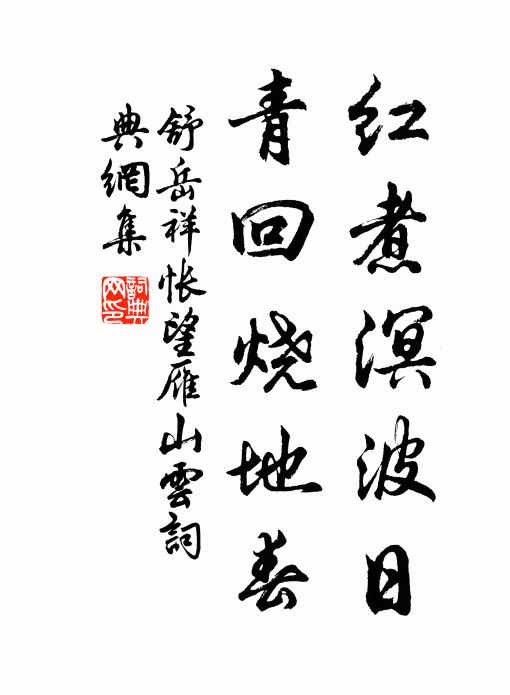 红煮溟波日
青回烧地春
舒岳祥怅望雁山雲詞
典網集
詞典网印